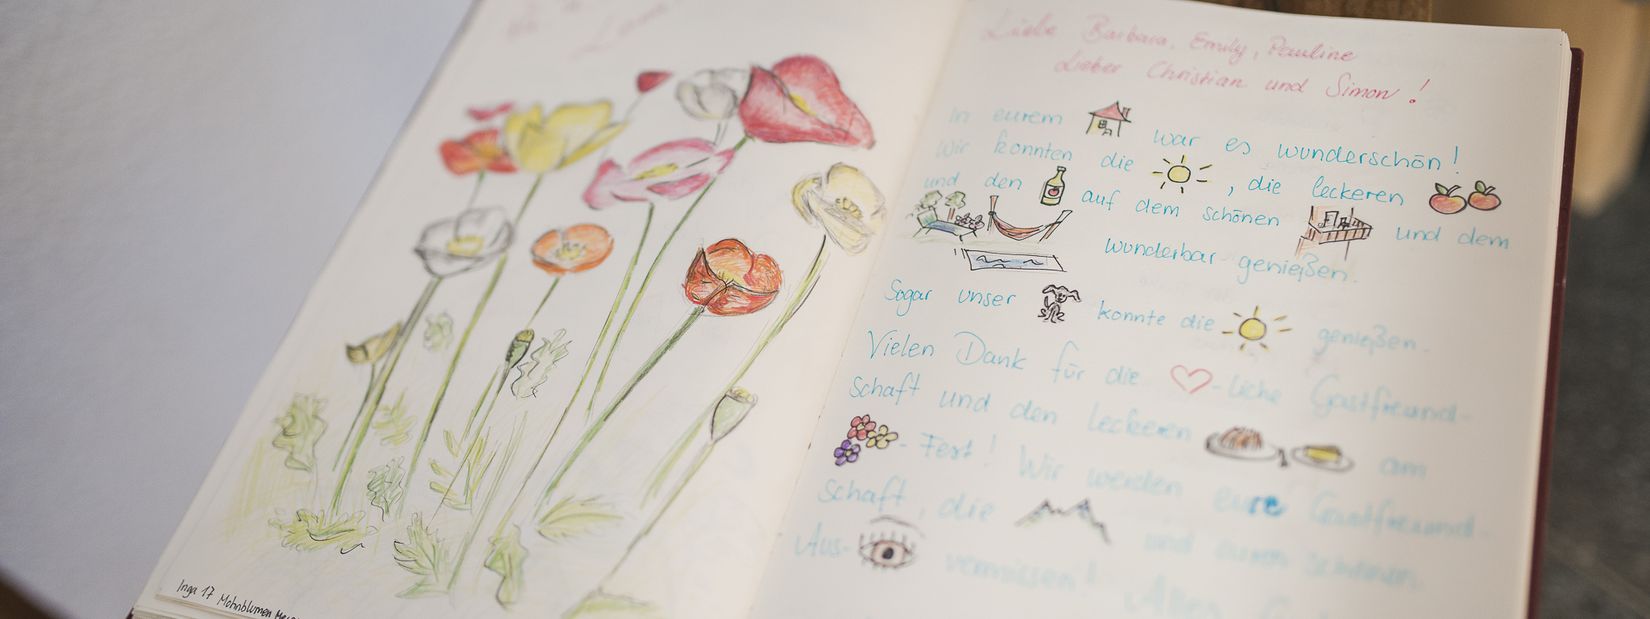 Inga 17 Mohnblumen
Liebe Barbara, Emily, Pauline
Lieber Christian und Simon!
In eurem war es wunderschön!
Wir konnten die , die leckeren
und den auf dem schönen und dem
wunderbar genießen.
Sogar unser konnte die genießen.
Vielen Dank für die -liche Gastfreund-
schaft und den leckeren am
- Fest! Wir werden eure Gastfreund-
schaft, die und euren schönen
Aus- vermissen!